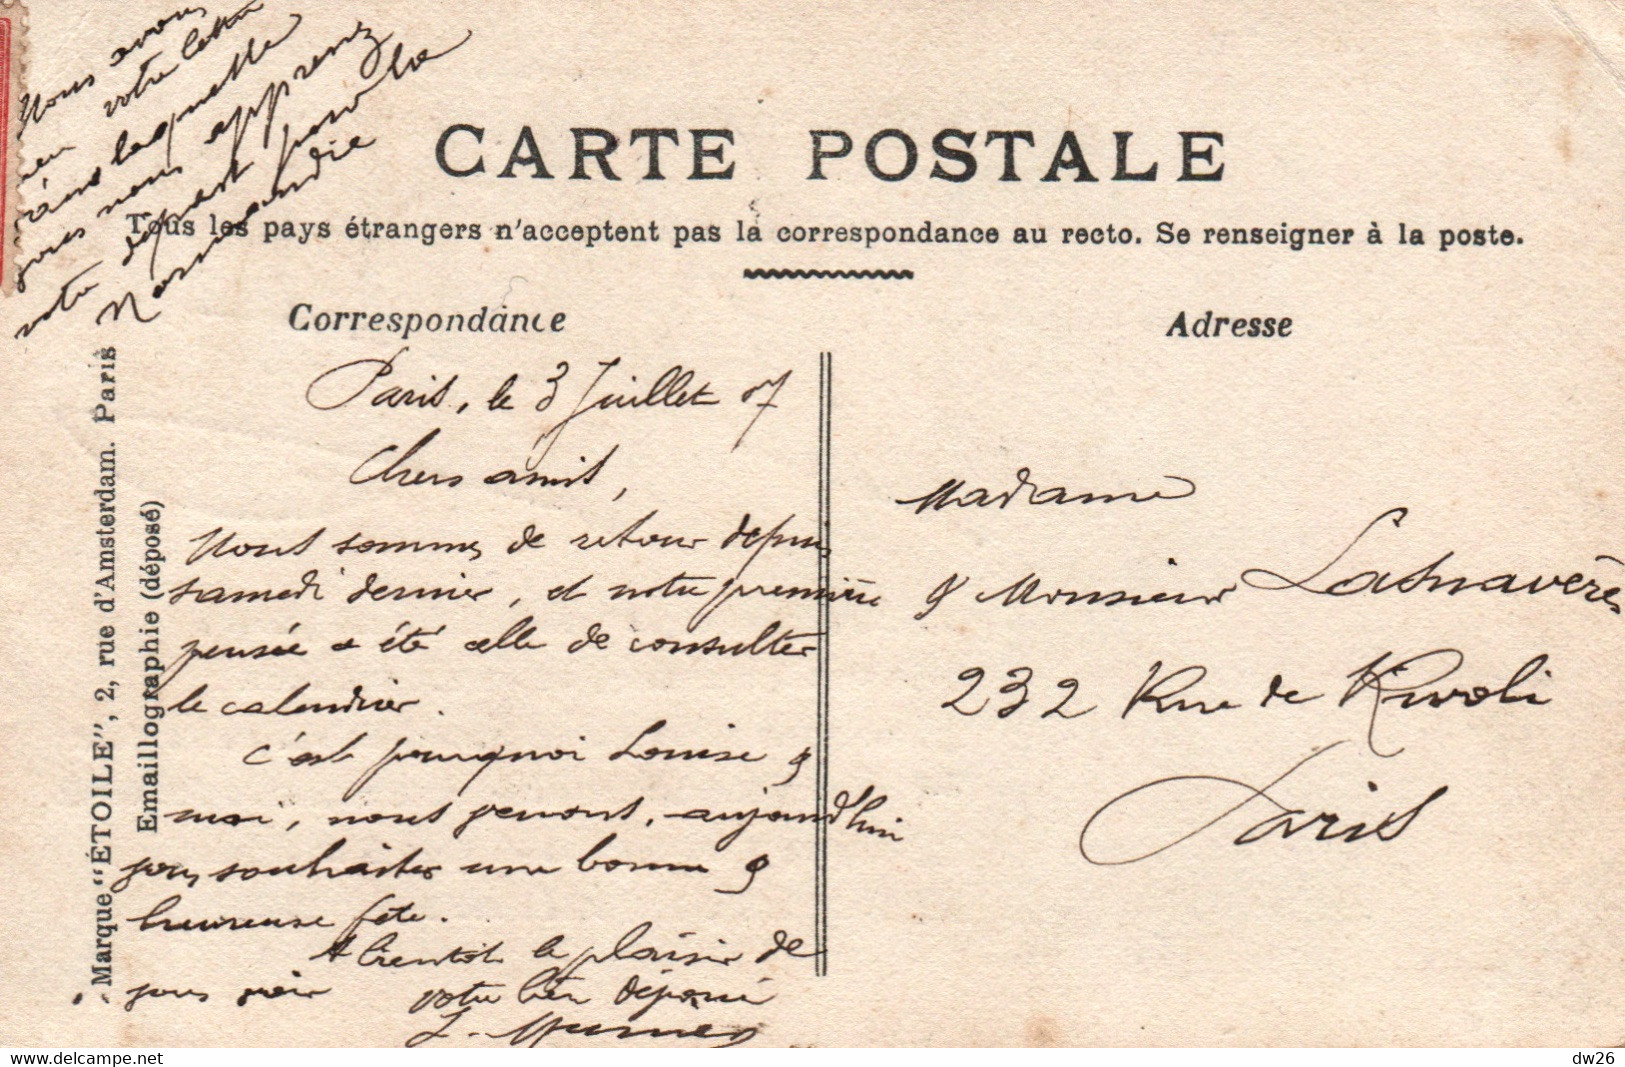 CARTE POSTALE
Tous les pays étrangers n'acceptent pas la correspondance au recto. Se renseigner à la poste.
Correspondance
Paris, le 3 Juillet 07
Chers amis,
Nous sommes de retour depuis
samedi dernier, et notre première
pensée a été celle de consulter
le calendrier.
C'est pourquoi Louise &
moi, nous venons, aujourd'hui
vous souhaiter une bonne &
heureuse fête.
A bientôt le plaisir de
vous voir votre bien dévoué
Nous avons
votre lettre
dans laquelle
vous nous apprenez
votre départ pour la
Normandie
Marque "ÉTOILE", 2, rue d'Amsterdam. Paris
Emaillographie (déposé)
Adresse
Madame
& Monsieur Lasnavères
232 Rue de Rivoli
Paris
delcampe.net
dw26